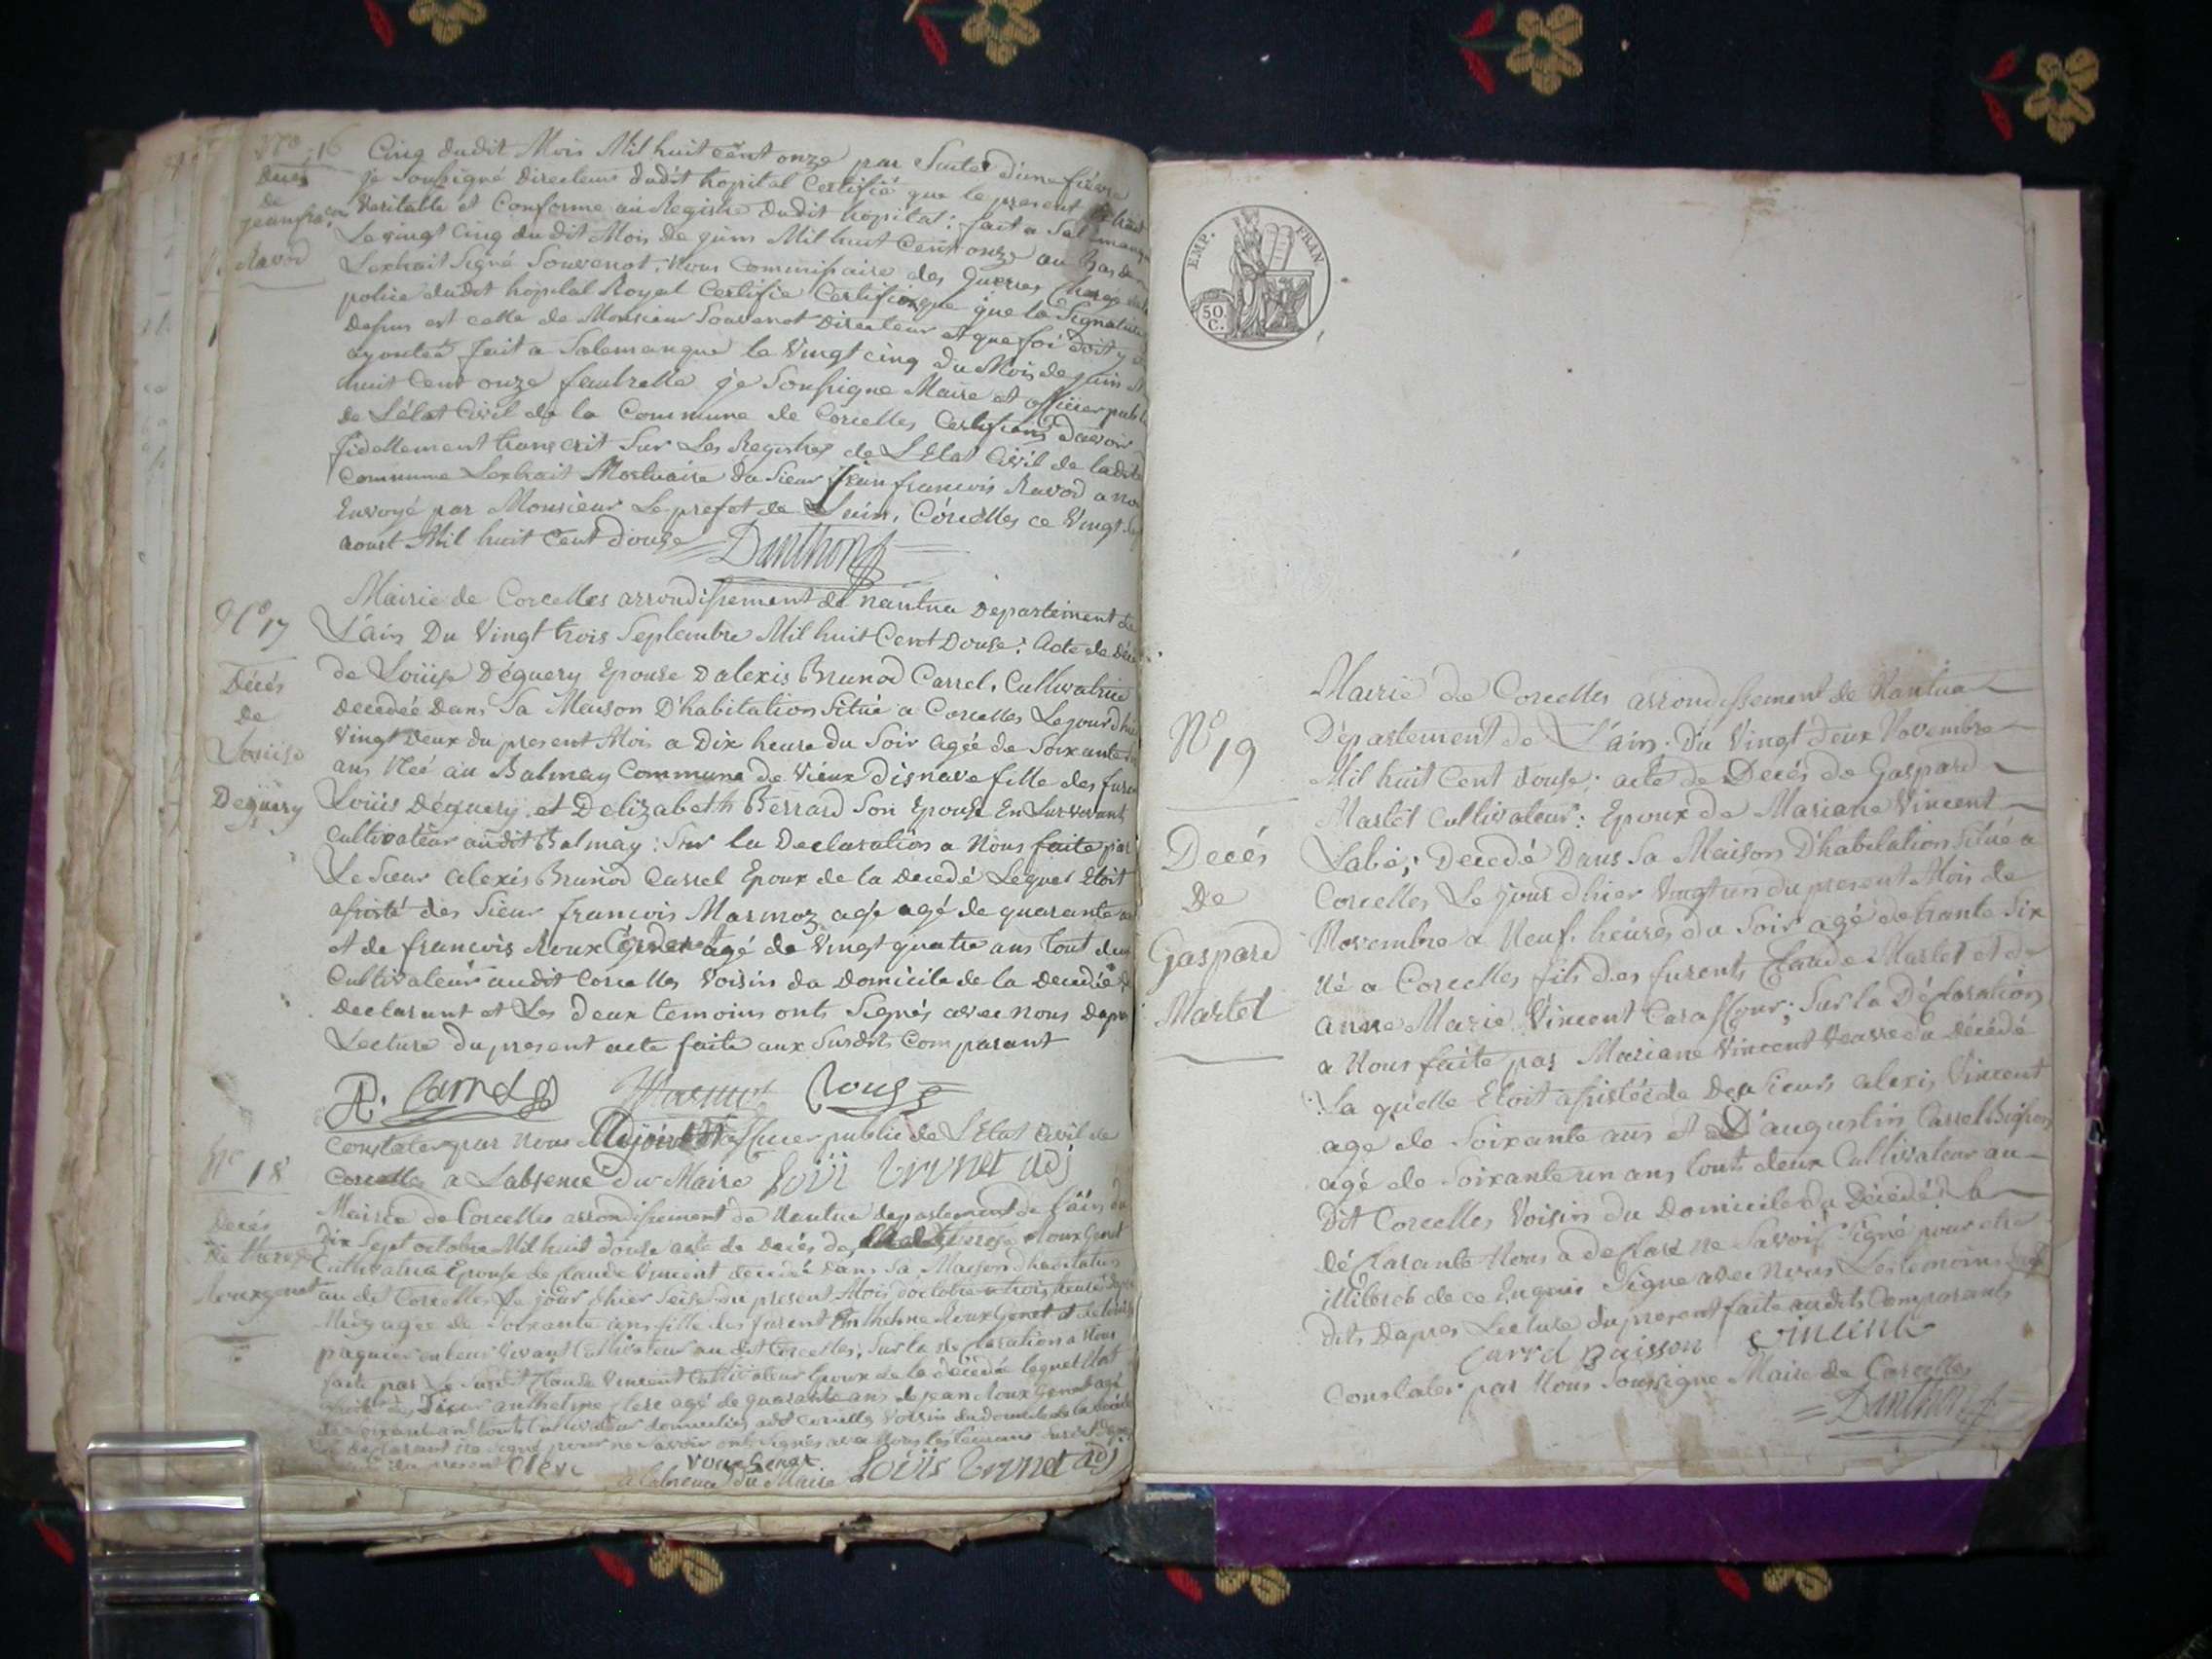 No 16
Décès
de
jeanfra.cois
Ravod
Cinq dudit Mois Mil huit cent onze par Suite d'une fiévre
je Soussigné Directeur dudit hopital Certifié que le present Extrait
Veritable et Conforme au Registre dudit hopital: fait a Salamanque
Le vingt Cinq du dit Mois de juin Mil huit Cent onze au Bas de
Lextrait Signé Souvenot. Nous Commissaire des Guerres Chargé de la
police dudit hopital Royal Certifie que la Signature
depus est celle de Monsieur Souvenot Directeur et que foi doit y
ajoutée fait a Salemanque le Vingt cinq du Mois de juin
huit Cent onze je Soussigne Maire et officier public
de L'état Civil de la Commune de Corcelles Certifions d'avoir
fidellement transcrit Sur Les Registres de L'Etat Civil de ladite
Commune Lextrait Mortuaire du Sieur Jean francois Ravod a nous
Envoyé par Monsieur Le prefet de Lain, Corcelles ce Vingt
aoust Mil huit Cent douze Danthon
No 17
Décés
de
Louise
Deguery
Mairie de Corcelles arrondissement de nantua Departement de
L'ain Du Vingt trois Septembre Mil huit Cent Douse: Acte de Décés
de Loüise Déguery Epouse Dalexis Brunod Carrel, Cultivatrice
decedée Dans Sa Maison D'habitation Situé a Corcelles Le jour d'hier
Vingt Deux du present Mois a Dix heure du Soir agée de Soixante
ans Née au Balmay Commune de Vieux disnave fille des furent
Loüis Déguery et Delizabeth Berrard Son Epouse En Survivant
Cultivateur audit Balmay: Sur la Declaration a Nous faite par
Le Sieur alexis Brunod Carrel Epoux de la decedé Lequel Etoit
assisté des Sieur francois Marmoz agé de quarante
et de francois Roux agé de Vingt quatre ans tout deux
Cultivateur audit Corcelles Voisin du Domicile de la decedée
Declarant et Les deux temoins onts Signés avec nous Dapres
Lecture du present acte faite aux Susdits Comparant
A. Carrel Roux
Constater par nous Adjoint officier public de L'Etat Civil de
Corcelles a Labsence du Maire Loüi Brunet adj
No 18
Décés
de therese
Rouxgenet
Mairie de Corcelles arrondissement de Nantua departement de L'ain du
Dix Sept octobre Mil huit douze acte de Décés de therese Roux Genet
Cultivatrice Epouse de Claude Vincent decedée dans Sa Maison d'habitation
au dit Corcelles Le jour d'hier Seise du present Mois d'octobre a trois heures
Midy agée de Soixante ans fille des furent Anthelme Roux Genet et de
en leur Vivant Cultivateur au dit Corcelles, Sur la declaration a Nous
faite par Le Claude Vincent Cultivateur Epoux de la decedé lequel Etoit
Sieur anthelme Clerc agé de quarante ans de jean Roux Genet agé
Cultivateur domiciliés audit Corcelles Voisin du domicile de la
declarant ne Signé pour ne Savoir ont Signés avec Nous Les temoins
du present Clerc Roux Genet
a labsence du Maire Loüis Brunet adj
EMP. FRAN
50.
C.
No 19
Decés
De
Gaspard
Martel
Mairie de Corcelles arrondissement de Nantua
Département de L'ain. Du Vingt deux Novembre
Mil huit Cent douse; acte de Decés de Gaspard
Martel Cultivateur: Epoux de Mariane Vincent
Labé; Decedé Dans Sa Maison D'habitation Situé a
Corcelles Le jour d'hier Vingt un du present Mois de
Novembre a Neuf heures du Soir agé de trante Six
Né a Corcelles fils des furents Claude Martel et de
anne Marie Vincent; Sur la Déclaration
a Nous faite par Mariane Vincent Veuve du décédé
La quelle Etoit assistée de Des Sieurs alexis Vincent
age de Soixante ans et D'augustin Carrel Buisson
agé de Soixante un ans touts deux Cultivateur au
Dit Corcelles Voisin du Domicile du Décédé La
Déclarante Nous a declaré ne Savoir Signé pour etre
de ce Enquis Signe avec Nous Les temoins Sus
dits Dapres Lecture du present faite audits Comparants
Carrel Buisson Vincent
Constater par Nous Soussigne Maire de Corcelles
Danthon